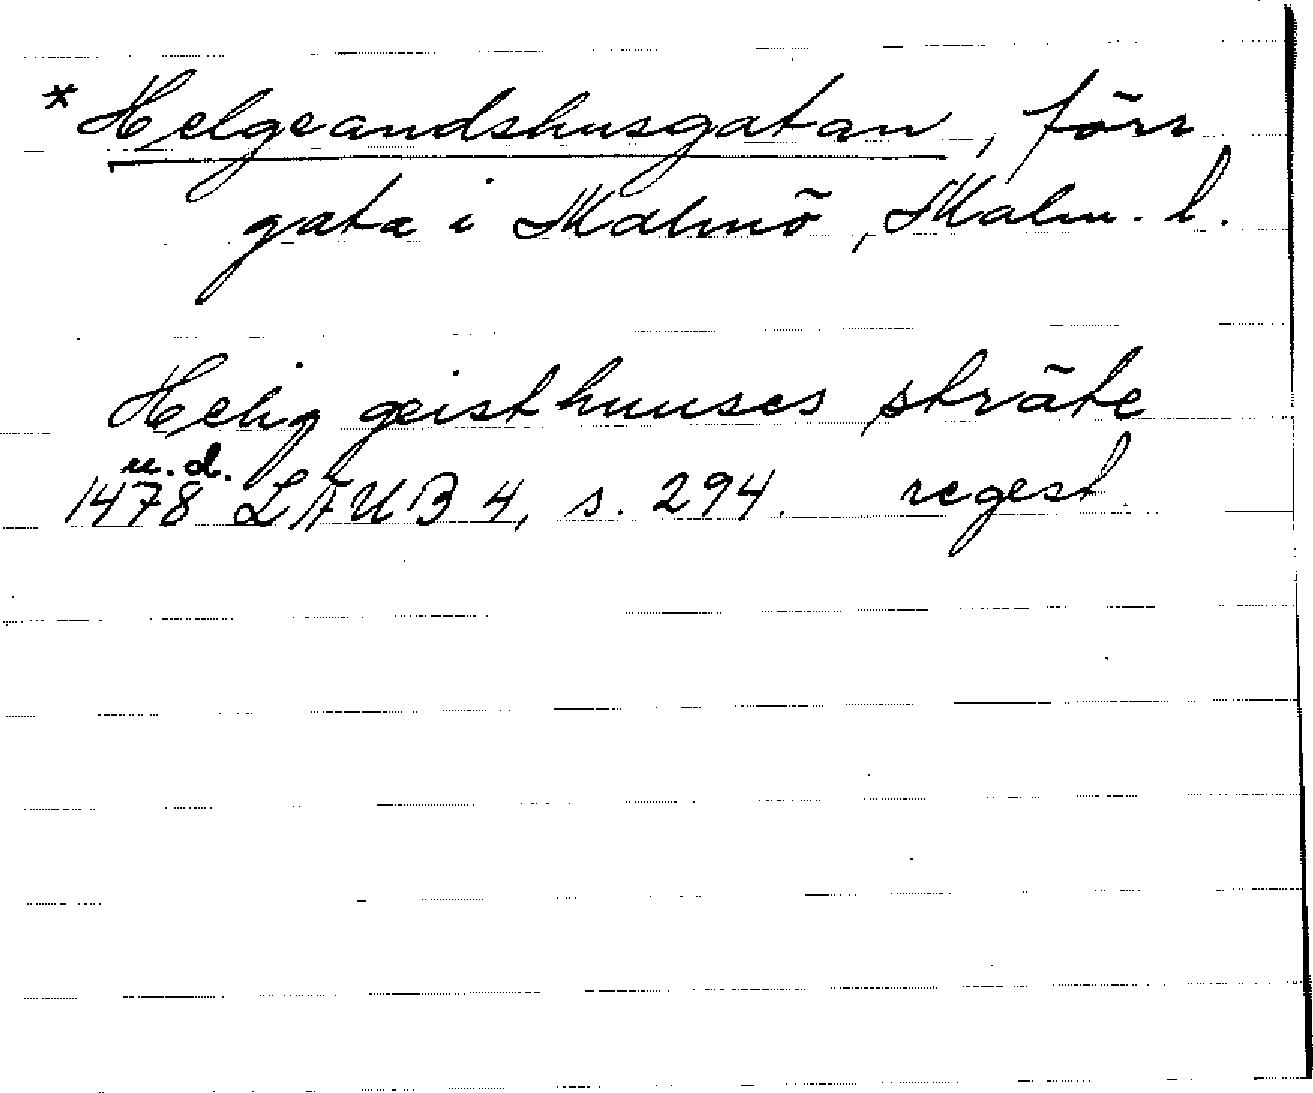 * Helgeandshusgatan, förr
gata i Malmö, Malm. l.
Helig geisthuuses sträte
u.d.
1478 LÄUB 4, s. 294. regest